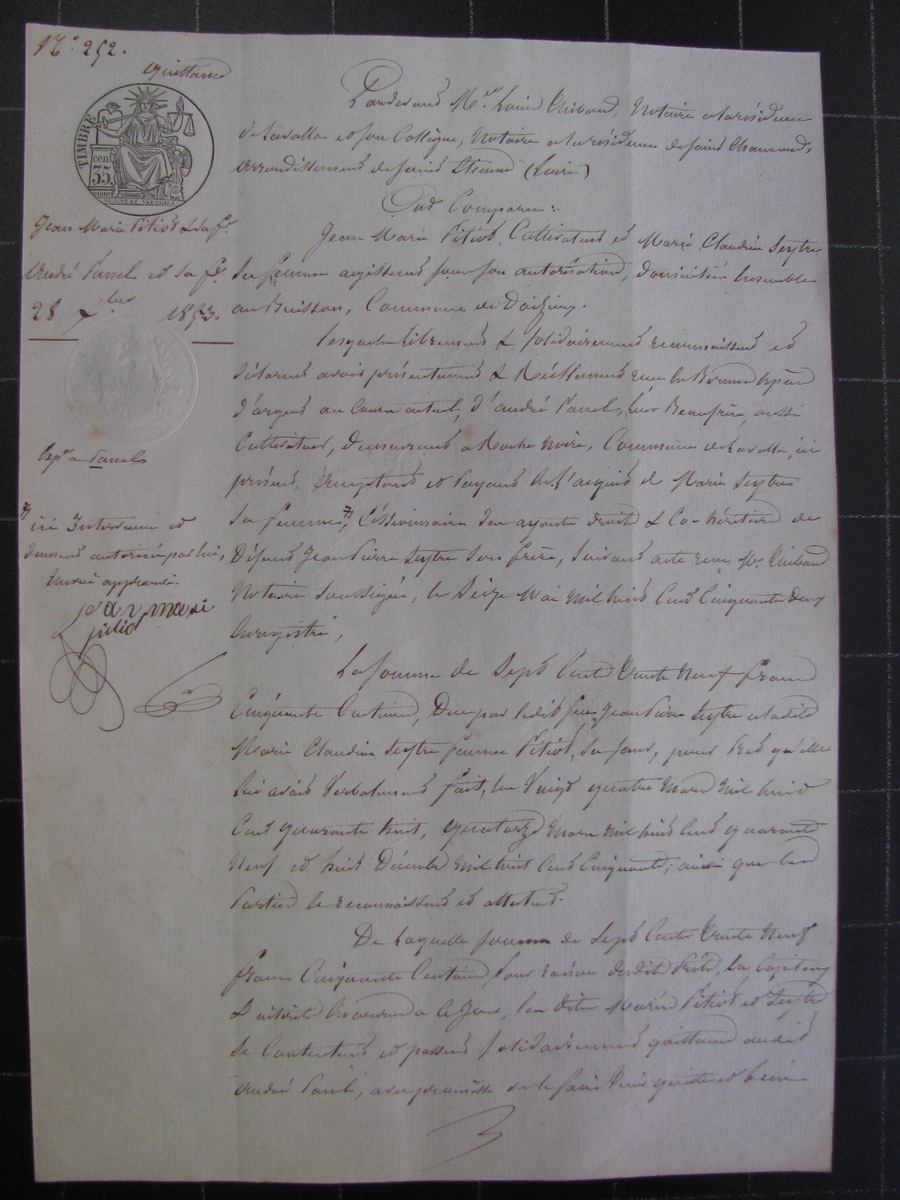 N.° 252.
quittance
TIMBRE
cen.
35
Jean Marie Pitiot & sa f.e
André Passel et sa f.e
28 7bre 1853.
Exp. a Passel
ici Intervenue et
dument autorisée par lui,
Renvoi approuvé.
jean marie
pitiot
Pardevant M.re Louis Thibaud, Notaire à la résidence
de Lavalla et son Collègue, Notaire à la résidence de Saint Chamond,
arrondissement de Saint Etienne (Loire)
Ont Comparu:
Jean Marie Pitiot, Cultivateur et Marie Claudine Seytre
Sa femme agissant sous son autorisation, domiciliés Ensemble
au Buisson, Commune de Doizieu.
Lesquels librement & solidairement reconnaissent et
déclarent avoir présentement & Réellement reçu En Bonnes Espèces
d'argent au Cours actuel, d'andré Passel, leur Beaufrère, aussi
Cultivateur, demeurant a Roche Noire, Commune de Lavalla, ici
présent, acceptant et Payant de l'acquis de Marie Seytre
Sa femme, Cessionnaire des ayants droit & Co-héritiers de
Défunt Jean Pierre Seytre Son frère, Suivant acte reçu M.e Thibaud
Notaire Soussigné, le Seize Mai Mil huit Cent Cinquante deux
Enregistré,
La Somme de Sept Cents Trente Neuf francs
Cinquante Centimes, Due par ledit feu Jean Pierre Seytre a ladite
Marie Claudine Seytre femme Pitiot, Sa Sœur, pour Prêts qu'elle
lui avait Verbalement fait, les Vingt quatre Mars Mil huit
Cent quarante huit, quatorze Mars Mil huit Cent quarante
Neuf et huit Décembre Mil huit Cent Cinquante; ainsi que les
Parties le reconnaissent et attestent.
De Laquelle Somme de Sept Cents Trente Neuf
francs Cinquante Centimes, Pour raison dudit Prêt, En Capitaux
& intérêts a Ce Jour, les dits Mariés Pitiot et Seytre
Se Contentent et passent Solidairement quittance audit
André Passel, avec promesse de le faire tenir quitte et